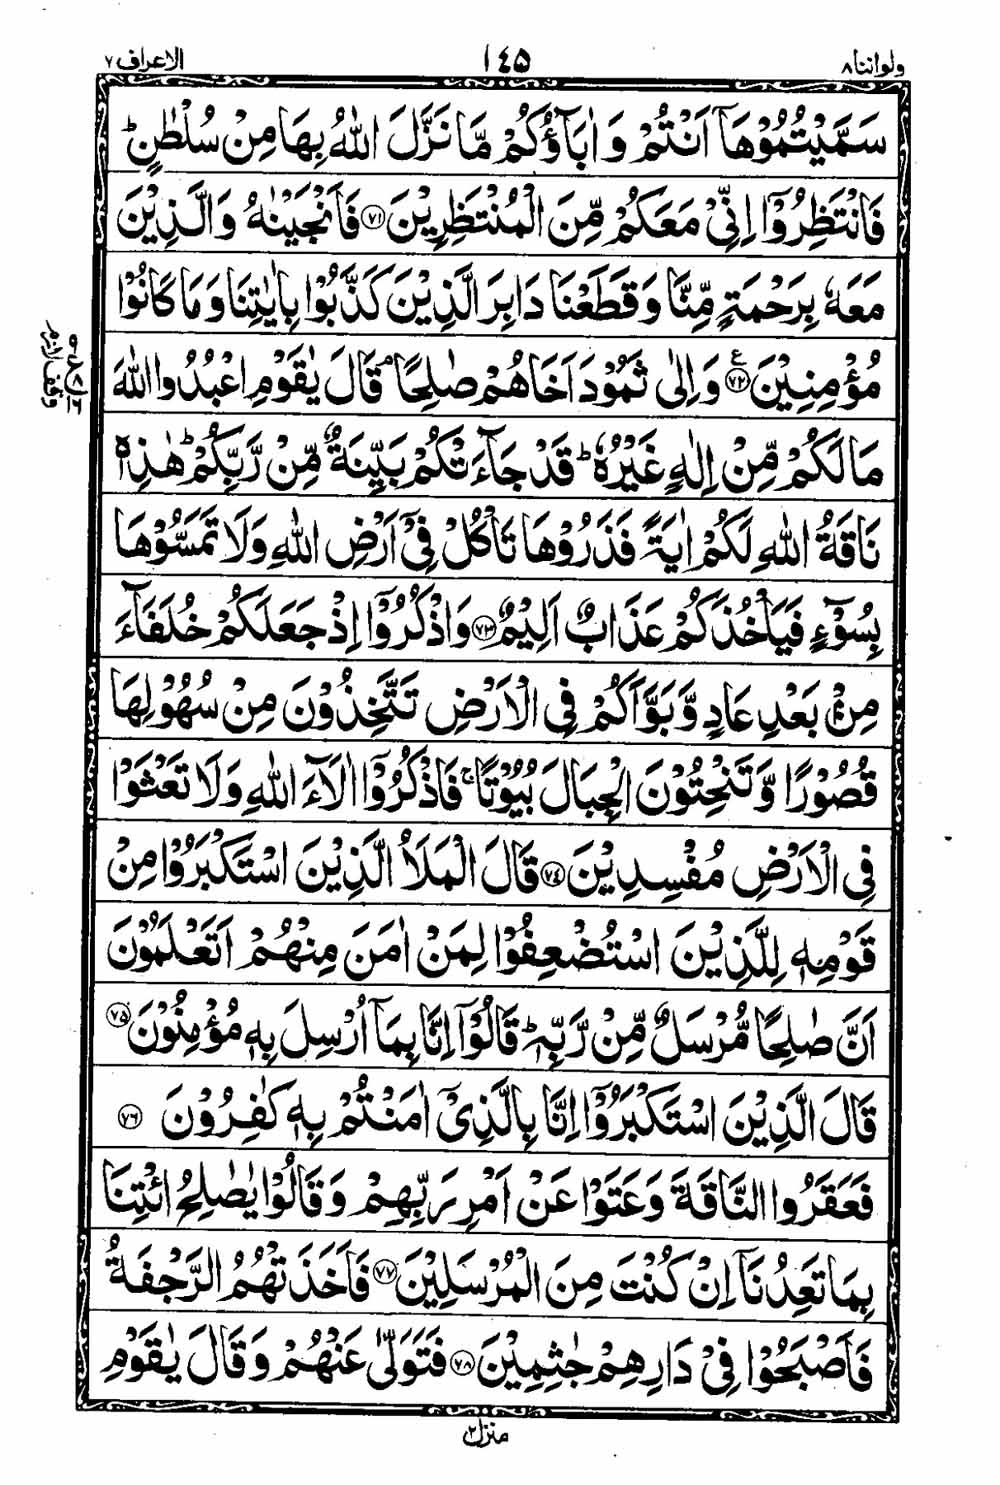 ولواننا ٨
١٤٥
الاعراف ٧
سَمَّيْتُمُوْهَاۤ اَنْتُمْ وَ اٰبَآؤُكُمْ مَّا نَزَّلَ اللّٰهُ بِهَا مِنْ سُلْطٰنٍ ؕ
فَانْتَظِرُوْۤا اِنِّيْ مَعَكُمْ مِّنَ الْمُنْتَظِرِيْنَ ﴿٧١﴾ فَاَنْجَيْنٰهُ وَ الَّذِيْنَ
مَعَهٗ بِرَحْمَةٍ مِّنَّا وَ قَطَعْنَا دَابِرَ الَّذِيْنَ كَذَّبُوْا بِاٰيٰتِنَا وَ مَا كَانُوْا
مُؤْمِنِيْنَ ﴿٧٢﴾ ع وَ اِلٰى ثَمُوْدَ اَخَاهُمْ صٰلِحًا ۘ قَالَ يٰقَوْمِ اعْبُدُوا اللّٰهَ
مَا لَكُمْ مِّنْ اِلٰهٍ غَيْرُهٗ ؕ قَدْ جَآءَتْكُمْ بَيِّنَةٌ مِّنْ رَّبِّكُمْ ؕ هٰذِهٖ
نَاقَةُ اللّٰهِ لَكُمْ اٰيَةً فَذَرُوْهَا تَاْكُلْ فِيْۤ اَرْضِ اللّٰهِ وَ لَا تَمَسُّوْهَا
بِسُوْٓءٍ فَيَاْخُذَكُمْ عَذَابٌ اَلِيْمٌ ﴿٧٣﴾ وَ اذْكُرُوْۤا اِذْ جَعَلَكُمْ خُلَفَآءَ
مِنْۢ بَعْدِ عَادٍ وَّ بَوَّاَكُمْ فِي الْاَرْضِ تَتَّخِذُوْنَ مِنْ سُهُوْلِهَا
قُصُوْرًا وَّ تَنْحِتُوْنَ الْجِبَالَ بُيُوْتًا ۚ فَاذْكُرُوْۤا اٰلَآءَ اللّٰهِ وَ لَا تَعْثَوْا
فِي الْاَرْضِ مُفْسِدِيْنَ ﴿٧٤﴾ قَالَ الْمَلَاُ الَّذِيْنَ اسْتَكْبَرُوْا مِنْ
قَوْمِهٖ لِلَّذِيْنَ اسْتُضْعِفُوْا لِمَنْ اٰمَنَ مِنْهُمْ اَتَعْلَمُوْنَ
اَنَّ صٰلِحًا مُّرْسَلٌ مِّنْ رَّبِّهٖ ؕ قَالُوْۤا اِنَّا بِمَاۤ اُرْسِلَ بِهٖ مُؤْمِنُوْنَ ﴿٧٥﴾
قَالَ الَّذِيْنَ اسْتَكْبَرُوْۤا اِنَّا بِالَّذِيْۤ اٰمَنْتُمْ بِهٖ كٰفِرُوْنَ ﴿٧٦﴾
فَعَقَرُوا النَّاقَةَ وَ عَتَوْا عَنْ اَمْرِ رَبِّهِمْ وَ قَالُوْا يٰصٰلِحُ ائْتِنَا
بِمَا تَعِدُنَاۤ اِنْ كُنْتَ مِنَ الْمُرْسَلِيْنَ ﴿٧٧﴾ فَاَخَذَتْهُمُ الرَّجْفَةُ
فَاَصْبَحُوْا فِيْ دَارِهِمْ جٰثِمِيْنَ ﴿٧٨﴾ فَتَوَلّٰى عَنْهُمْ وَ قَالَ يٰقَوْمِ
منزل ٢